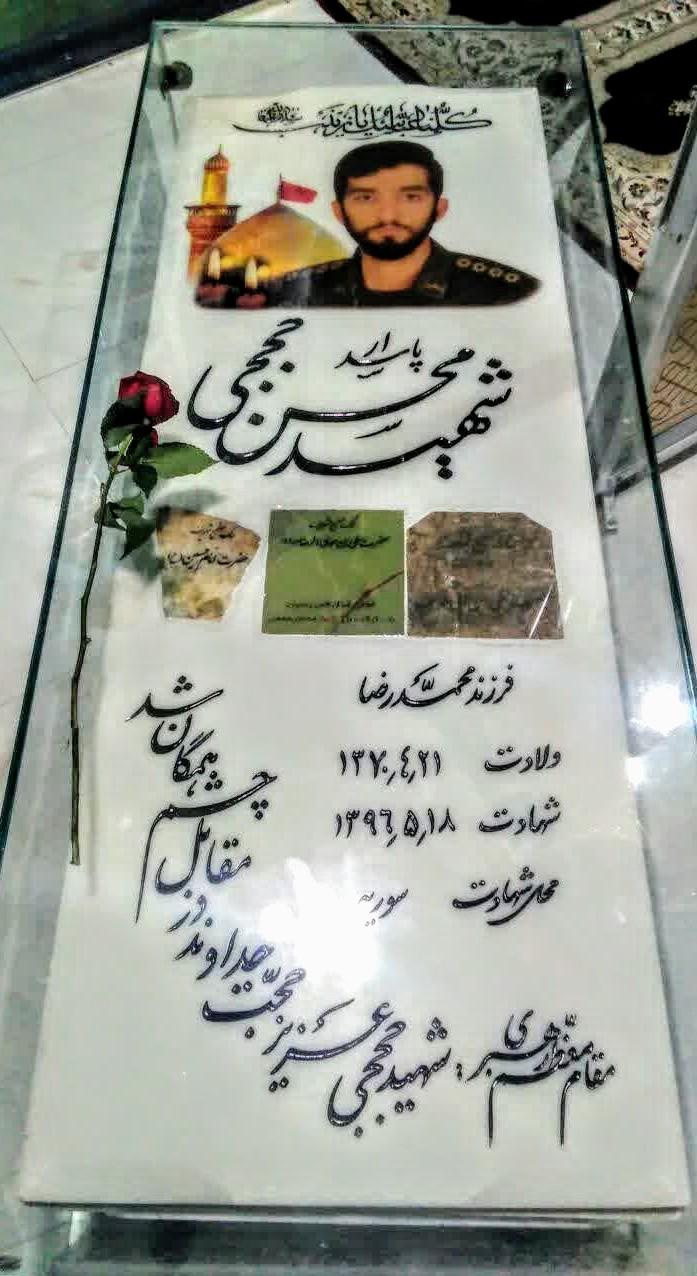 کلنا عباسک یا زینب
پاسدار
شهید محسن حججی
سنگ
حضرت امام حسین
فرزند محمدرضا
ولادت ۱۳۷۰٫۴٫۲۱
شهادت ۱۳۹۶٫۵٫۱۸
محل شهادت سوریه
مقام معظم رهبری : شهید حججی عزیز حجت خداوند در مقابل چشم همگان شد